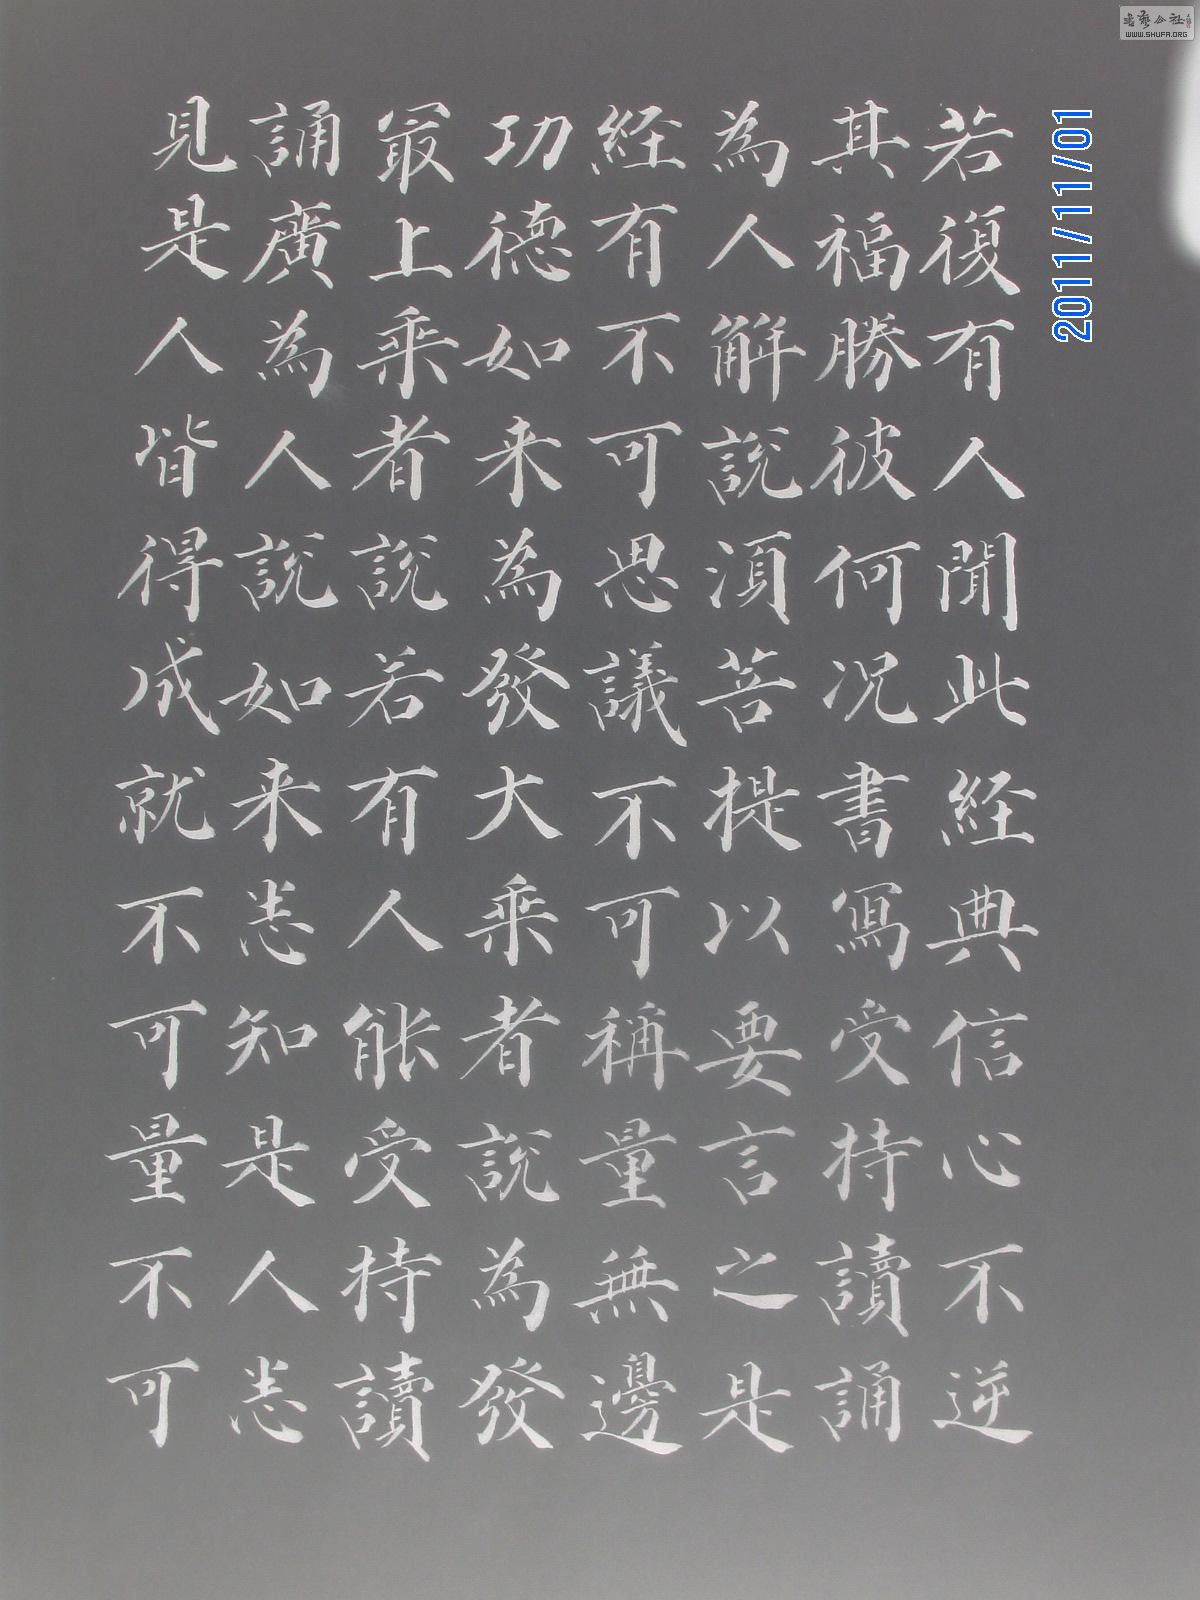 若復有人聞此経典信心不逆
其福勝彼何况書寫受持讀誦
為人解説湏菩提以要言之是
経有不可思議不可稱量無邊
功徳如来為發大乘者説為發
最上乘者説若有人能受持讀
誦廣為人説如来悉知是人悉
見是人皆得成就不可量不可
2011/11/01
书艺公社
WWW.SHUFA.ORG